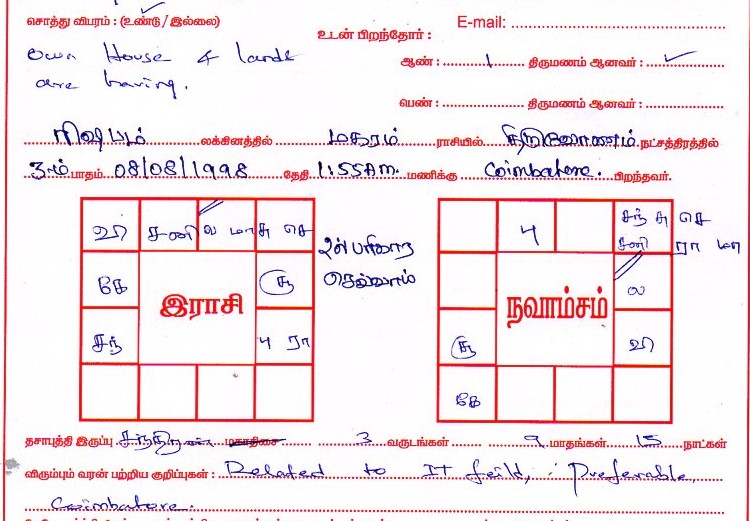 சொத்து விபரம் : (உண்டு / இல்லை)
E-mail:
உடன் பிறந்தோர் :
Own House & lands
are having.
ஆண் : 1 திருமணம் ஆனவர் :
பெண் : திருமணம் ஆனவர் :
ரிஷபம் லக்கினத்தில் மகரம் ராசியில் திருவோணம் நட்சத்திரத்தில்
3-ம் பாதம் 08/08/1998 தேதி 1:55 Am. மணிக்கு Coimbatore. பிறந்தவர்.
வி சனி ல மா சு செ
கே சூ
சந் பு ரா
இராசி
பு சந் சு செ
சனி ரா மா
ல
சூ வி
கே
நவாம்சம்
தசாபுத்தி இருப்பு 3 வருடங்கள் 9 மாதங்கள் 15 நாட்கள்
விரும்பும் வரன் பற்றிய குறிப்புகள் : Related to IT feild, Preferable,
Coimbatore.